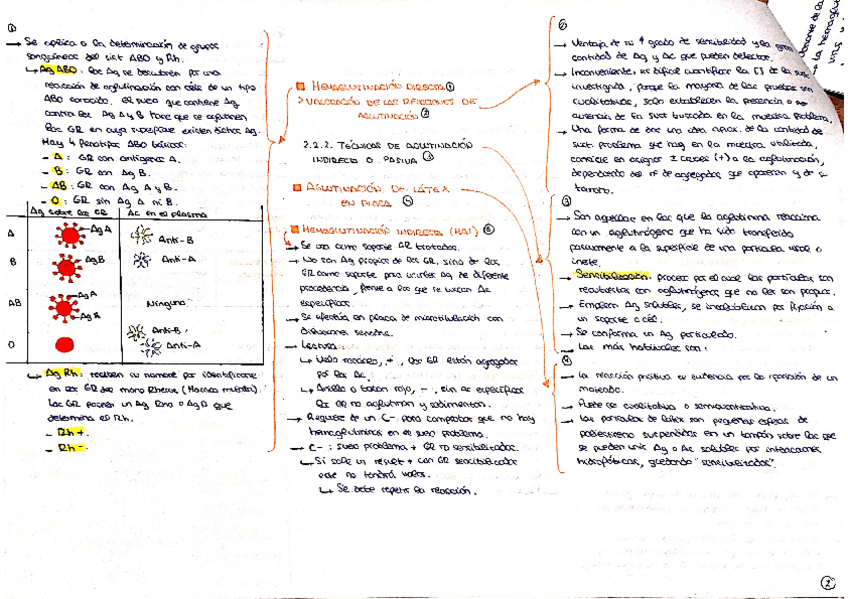 ①
→ Se aplica a la determinación de grupos
sanguíneos del sist ABO y Rh.
↳ Ag ABO: los Ag se descubren por una
reacción de aglutinación con céls de un tipo
ABO conocido. El suero que contiene Ag
contra los Ag A y B hace que se aglutinen
los GR en cuya superficie existen dichos Ag.
Hay 4 fenotipos ABO básicos:
- A: GR con antígeno A.
- B: GR con Ag B.
- AB: GR con Ag A y B.
- O: GR sin Ag A ni B.
Ag sobre los GR Ac en el plasma
A Ag A Anti-B
B Ag B Anti-A
AB Ag A Ag B Ninguno
O Anti-B Anti-A
↳ Ag Rh: reciben su nombre por identificarse
en los GR del mono Rhesus (Macaca mulatta).
Los GR poseen un Ag Rho o Ag D que
determina el Rh.
- Rh +
- Rh -
HEMAGLUTINACIÓN DIRECTA ①
> VALORACIÓN DE LAS REACCIONES DE
AGLUTINACIÓN ②
2.2.2. TÉCNICAS DE AGLUTINACIÓN
INDIRECTA O PASIVA ③
AGLUTINACIÓN DE LÁTEX
EN PLACA ④
HEMAGLUTINACIÓN INDIRECTA (HAI) ⑤
→ Se usa como soporte GR tratados.
→ No son Ag propios de los GR, sino de los
GR como soporte para unirles Ag de diferente
procedencia, frente a los que se buscan Ac
específicos.
→ Se efectúa en placas de microtitulación con
diluciones seriadas.
→ Lectura:
↳ Velo rosáceo, +, los GR están agregados
por los Ac.
↳ Anillo o botón rojo, -, sin Ac específicos
los GR no aglutinan y sedimentan.
→ Requiere de un C- para comprobar que no hay
hemaglutininas en el suero problema.
→ C-: suero problema + GR no sensibilizados.
↳ Si sale un result + con GR sensibilizados
este no tendrá valor.
↳ Se debe repetir la reacción.
②
→ Ventaja de su ↑ grado de sensibilidad y la gran
cantidad de Ag y Ac que pueden detectar.
→ Inconvenientes: es difícil cuantificar la [] de la sust
investigada, porque la mayoría de las pruebas son
cualitativas, solo establecen la presencia o no
ausencia de la sust buscada en la muestra problema.
→ Una forma de dar una idea aprox. de la cantidad de
sust problema que hay en la muestra utilizada,
consiste en asignar ± cruces (+) a la aglutinación,
dependiendo del nº de agregados que aparecen y de su
tamaño.
③
→ Son aquellas en las que la aglutinina reacciona
con un aglutinógeno que ha sido transferido
pasivamente a la superficie de una partícula usual o
inerte.
→ Sensibilización: proceso por el cual las partículas son
recubiertas con aglutinógenos que no les son propios.
→ Emplean Ag solubles, se inmovilizan por fijación a
un soporte o cél.
→ Se conforma un Ag particulado.
→ Las más habituales son:
④
→ La reacción positiva se evidencia por la aparición de un
moteado.
→ Puede ser cualitativa o semicuantitativa.
→ Las partículas de látex son pequeñas esferas de
poliestireno suspendidas en un tampón sobre las que
se pueden unir Ag o Ac solubles por interacciones
hidrofóbicas, quedando "sensibilizadas".
②